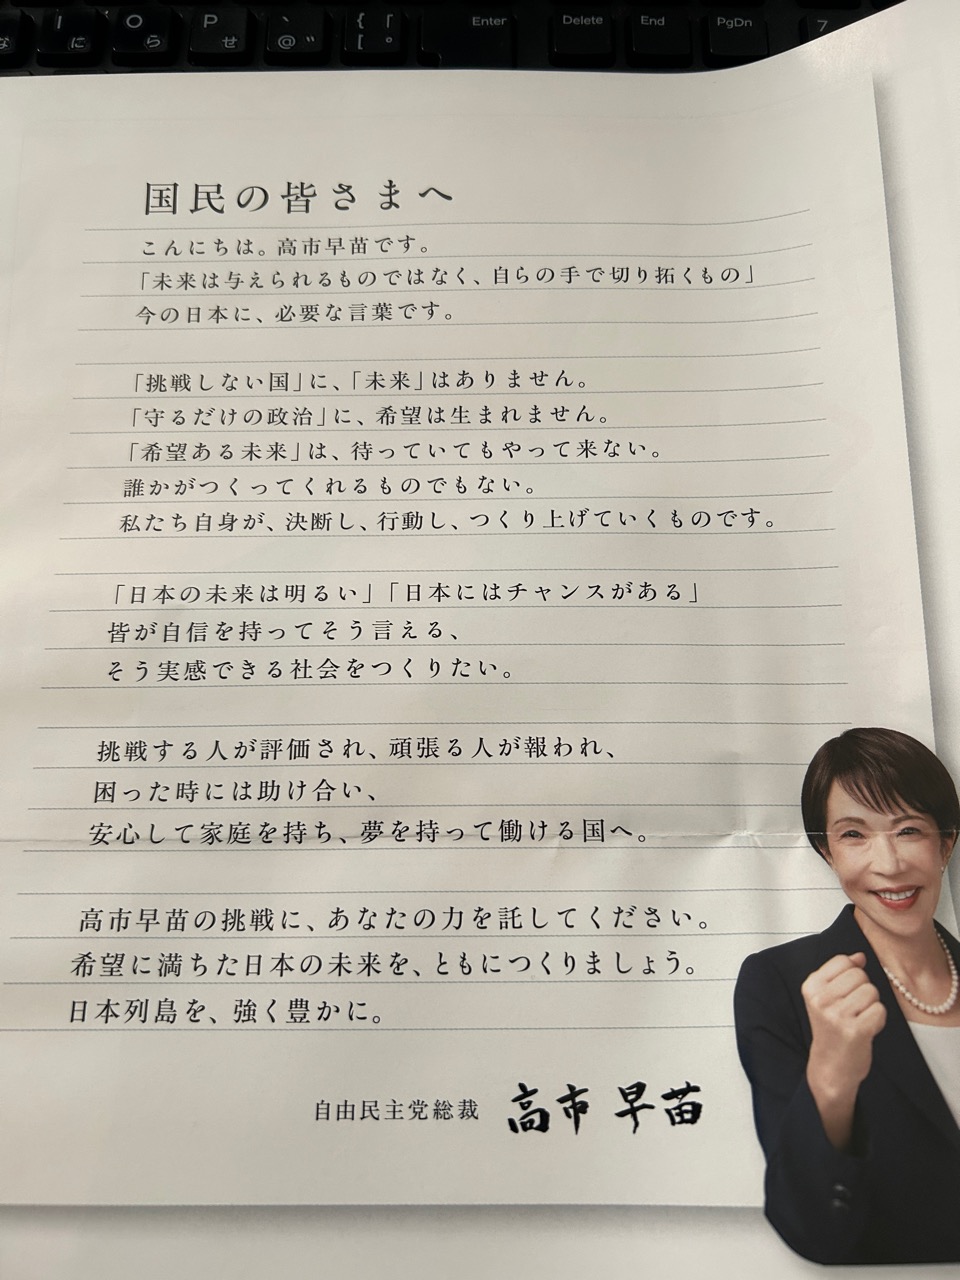 I
に
O
ら
P
せ
、
@
゛
{
「
[
。
Enter
Delete
End
PgDn
7
な
国民の皆さまへ
こんにちは。高市早苗です。
「未来は与えられるものではなく、自らの手で切り拓くもの」
今の日本に、必要な言葉です。
「挑戦しない国」に、「未来」はありません。
「守るだけの政治」に、希望は生まれません。
「希望ある未来」は、待っていてもやって来ない。
誰かがつくってくれるものでもない。
私たち自身が、決断し、行動し、つくり上げていくものです。
「日本の未来は明るい」「日本にはチャンスがある」
皆が自信を持ってそう言える、
そう実感できる社会をつくりたい。
挑戦する人が評価され、頑張る人が報われ、
困った時には助け合い、
安心して家庭を持ち、夢を持って働ける国へ。
高市早苗の挑戦に、あなたの力を託してください。
希望に満ちた日本の未来を、ともにつくりましょう。
日本列島を、強く豊かに。
自由民主党総裁 高市早苗